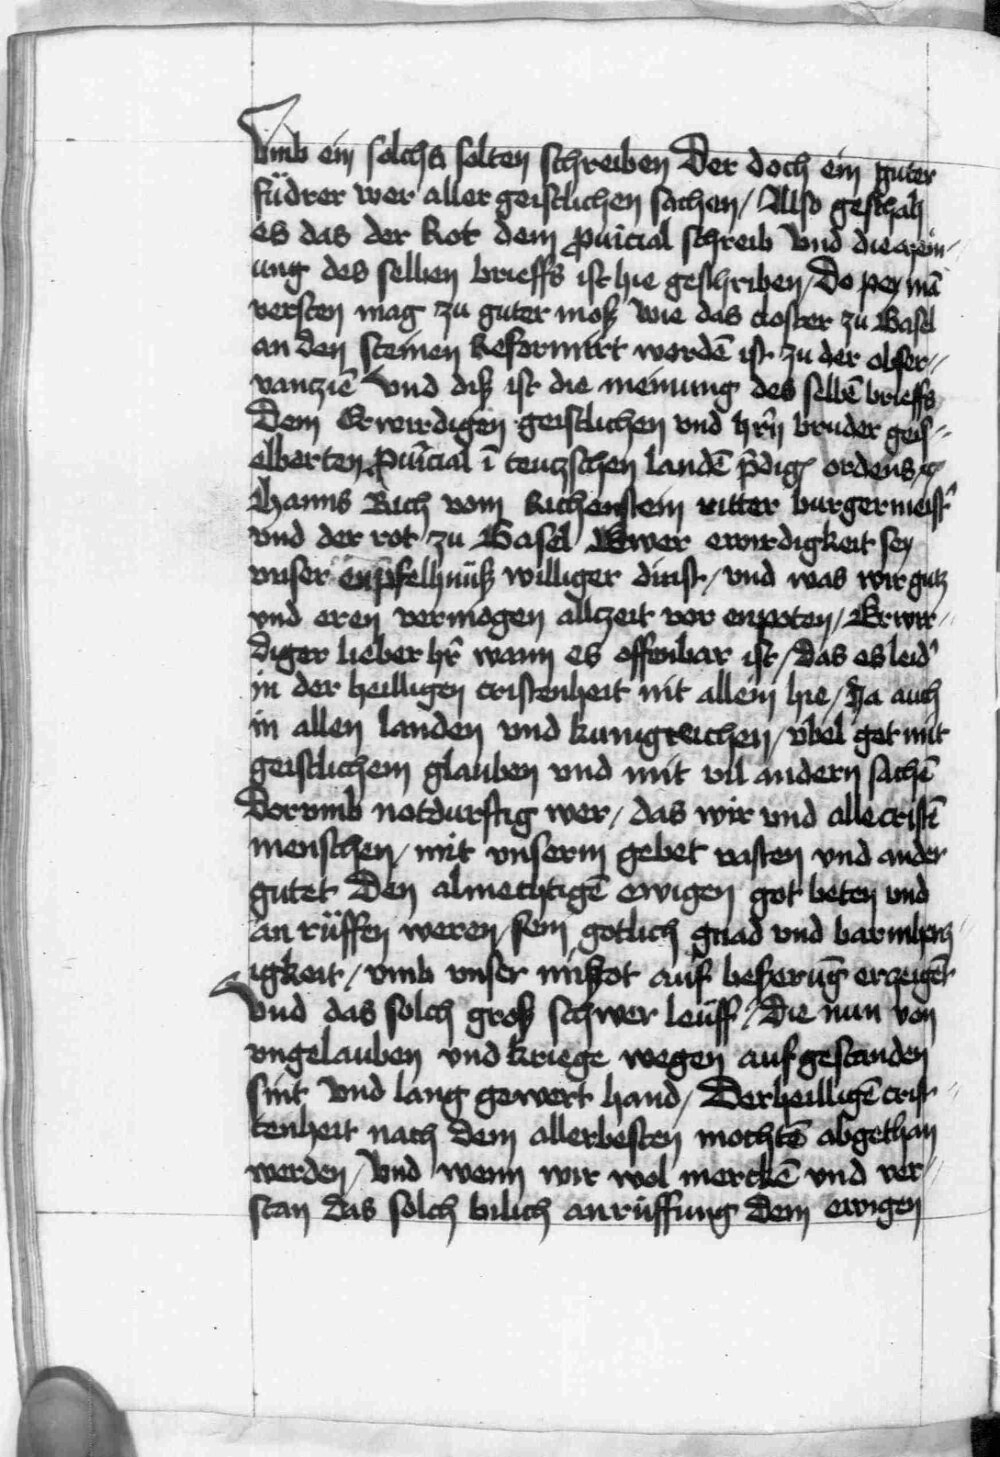 Vmb ein solchs solten schreiben Der doch ein guter
füdrer wer aller geistlichen sachen / Also geschah
es das der Rot dem p̄uīcial schreib Vnd die mein⸗
ung des selben brieffs ist hie geschriben / Do pey mā
versten mag zu guter moß Wie das closter zu Basel
an den steinen Reformirt wordē ist zu der obser⸗
vancziē Vnd diß ist die meinung des selbē brieffs
Dem Erwirdigen geistlichen vnd hr̄n bruder geis⸗
elberten p̄uīcial ī teutzschen landē p̄dig ordens
Hanns Rich vom Richenstein ritter burgermeist̉
vnd der rot zu Basel Ewer erwirdigkeit sey
vnser enpfelhnüß williger dinst / vnd was wir gutz
vnd eren vermogen allczeit vor enpoten / Erwir⸗
diger lieber hr̄ wann es offenbar ist / das es leid̉
in der heilligen cristenheit nit allein hie / Ja auch
in allen landen vnd kunigreichen / vbel get mit
geistlichem glauben vnd mit vil andern sachē
Dorvmb notdurftig wer / das wir vnd alle cristē
menschen / mit vnserm gebet vasten vnd ander
gutet Den almechtigē ewigen got beten vnd
an rüffen weren / sein gotlich gnad vnd barmhertz⸗
igkeit / vmb vnser mißtot auf beßerūg erzeigēt
Vnd das solch groß schwer leüff / Die nun von
vngelauben vnd kriege wegen auf gestanden
sint Vnd lang gewert hand / Der heilligē cris⸗
tenheit nach dem allerbesten mochtē abgethan
werden / Vnd wenn wir wol merckē vnd ver⸗
stan das solch bilich anrüffung dem ewigen